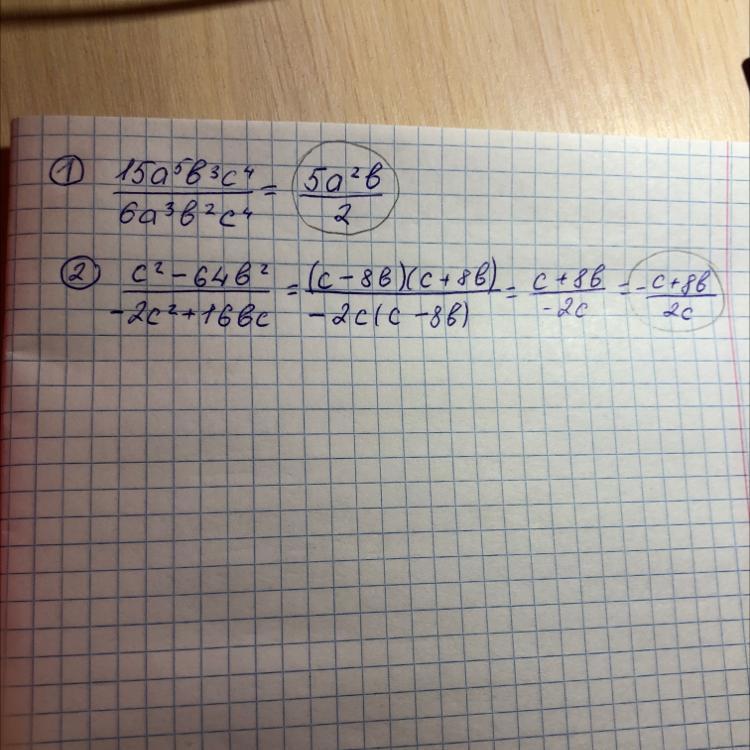 ① 15a⁵в³c⁴/6a³в²c⁴ = 5a²в/2
② c² - 64в²/-2c² + 16вc = (c - 8в)(c + 8в)/-2c(c - 8в) = c + 8в/-2c = - c + 8в/2c